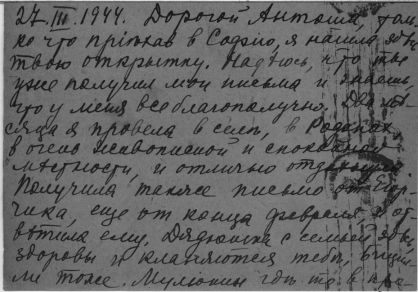 27.III.1944. Дорогой Антоша, толь
ко что приѣхав в Софию, я нашла здѣсь
твою открытку. Надѣюсь, что ты
уже получил мои письма и знаешь,
что у меня все благополучно. Два мѣ
сяца я провела в селѣ, в Родопах,
в очень живописной и спокойной
мѣстности, и отлично отдохнула.
Получила также письмо от
чика, еще от конца февраля, и от
вѣтила ему. Дядюшка с семьей
здоровы и кланяются тебѣ,
ли тоже. гдѣ то в